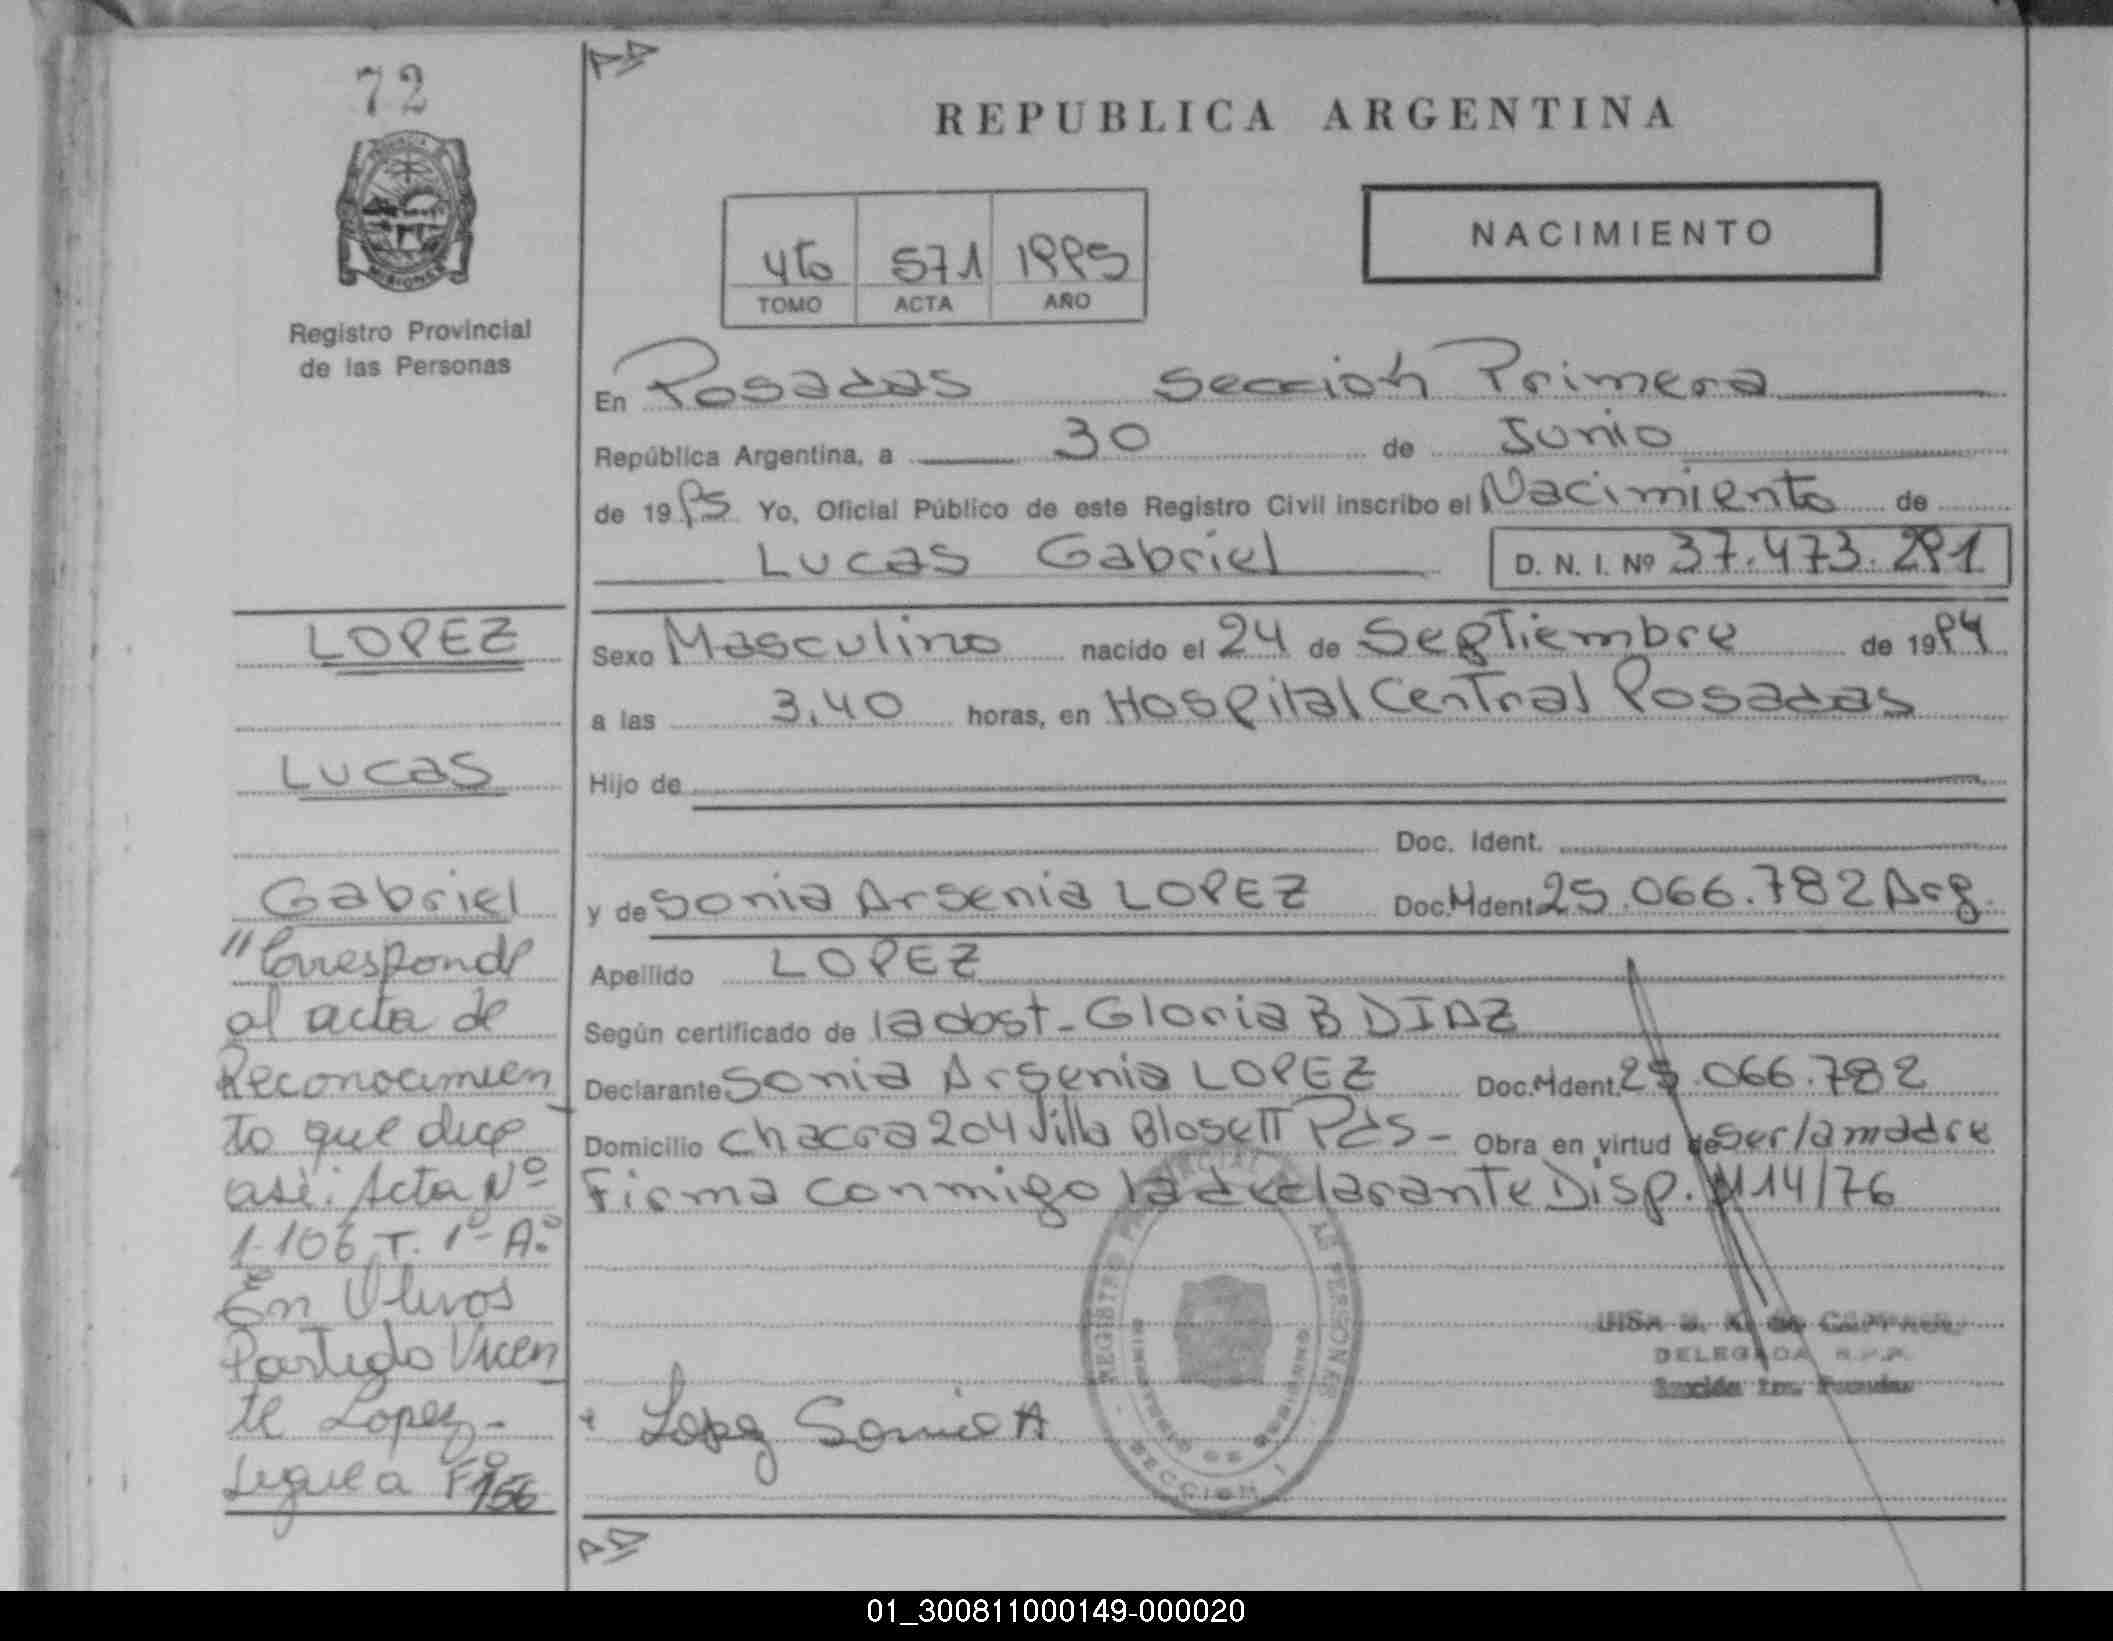 72
Registro Provincial
de las Personas
REPUBLICA ARGENTINA
NACIMIENTO
4to 571 1995
TOMO ACTA AÑO
En Posadas Sección Primera
República Argentina, a 30 de Junio
de 1995 Yo, Oficial Público de este Registro Civil inscribo el Nacimiento de
Lucas Gabriel D. N. I. Nº 37.473.291
Sexo Masculino nacido el 24 de Septiembre de 1994
a las 3,40 horas, en Hospital Central Posadas
Hijo de
Doc. Ident.
y de Sonia Arsenia LOPEZ Doc. Ident. 25.066.782 Arg.
Apellido LOPEZ
Según certificado de la obst. Gloria B DIAZ
Declarante Sonia Arsenia LOPEZ Doc. Ident. 25.066.782
Domicilio Chacra 204 Villa Blosett Pdas - Obra en virtud de ser la madre
Firma conmigo la declarante Disp. 14/76
Lopez Sonia A
DELEGADA R.P.P.
REGISTRO PROVINCIAL DE LAS PERSONAS
SECCION 1
LOPEZ
Lucas
Gabriel
"Corresponde
al acta de
Reconocimien
to que dice
así: Acta Nº
1.106 T. 1º Aº
En Olivos
Partido Vicen
te Lopez -
Sigue a Fº 156
01_300811000149-000020